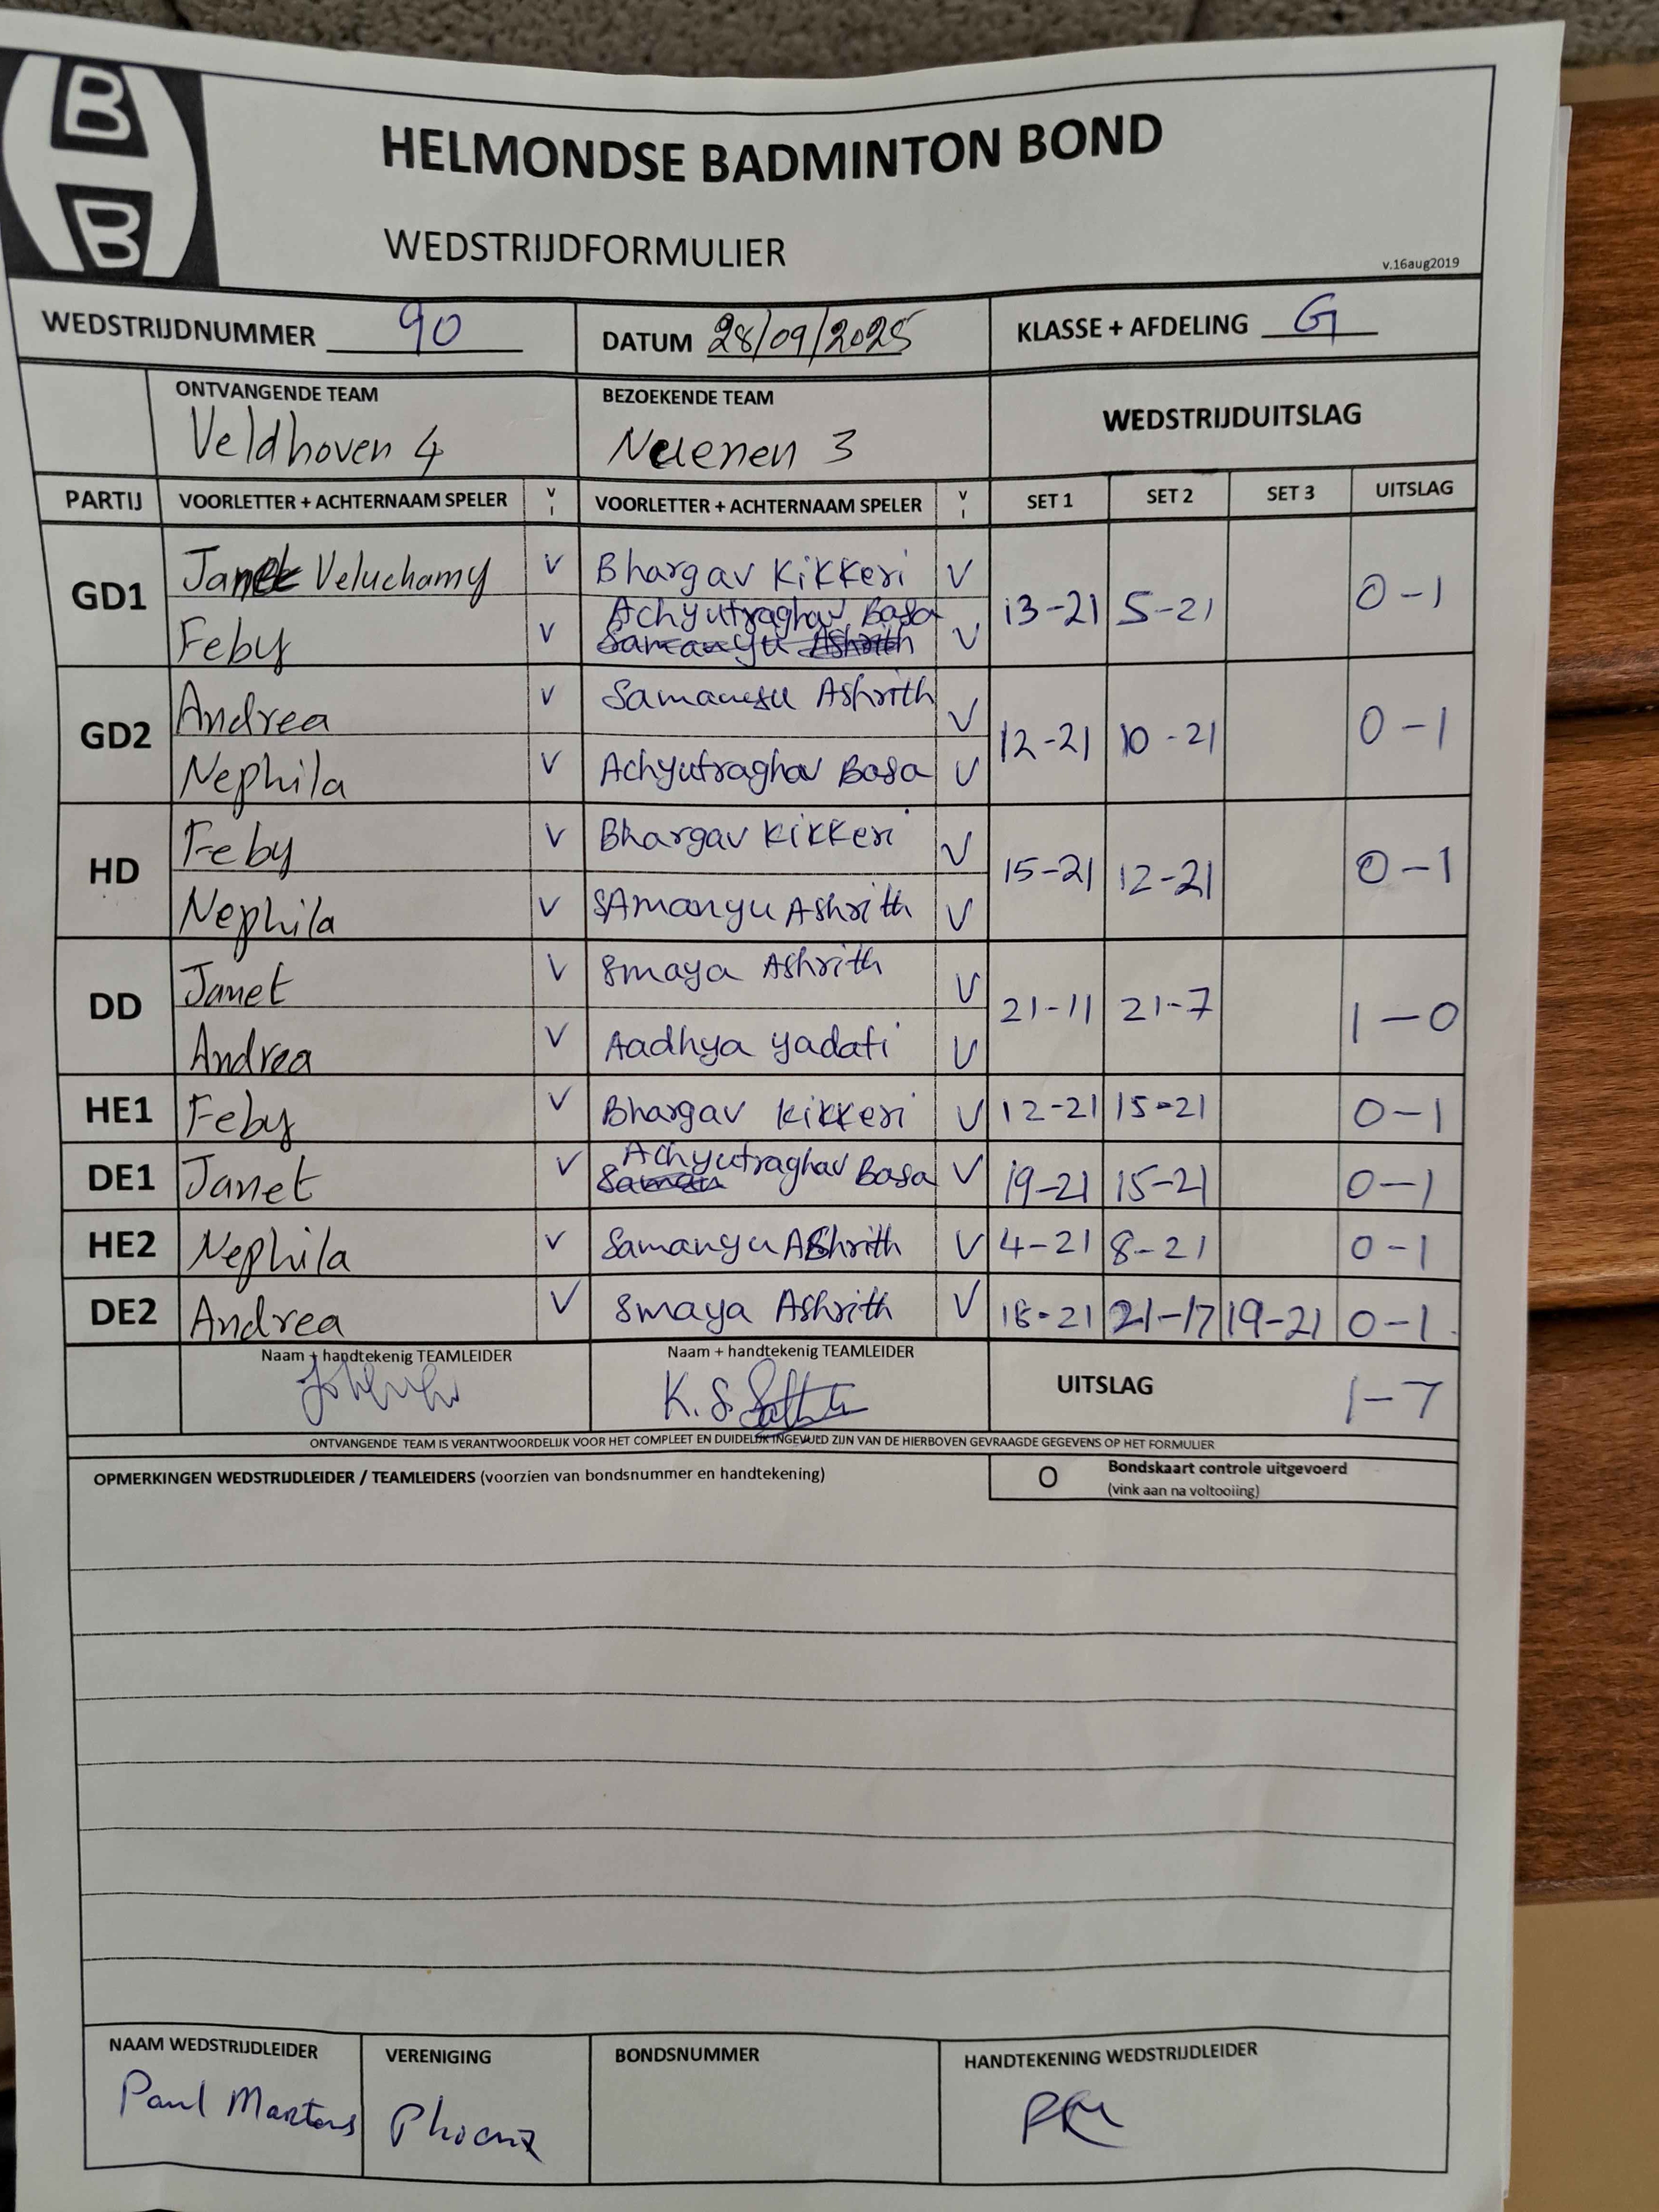 B
B
HELMONDSE BADMINTON BOND
WEDSTRIJDFORMULIER
v.16aug2019
WEDSTRIJDNUMMER 90 DATUM 28/09/2025 KLASSE + AFDELING G
ONTVANGENDE TEAM BEZOEKENDE TEAM WEDSTRIJDUITSLAG
Veldhoven 4 Nuenen 3
PARTIJ VOORLETTER + ACHTERNAAM SPELER V I VOORLETTER + ACHTERNAAM SPELER V I SET 1 SET 2 SET 3 UITSLAG
GD1 Janet Veluchamy V Bhargav Kikkeri V 13-21 5-21 0-1
Achyutraghav Basa
Feby V Samanyu Ashrith V
GD2 Andrea V Samanyu Ashrith V 12-21 10-21 0-1
Nephila V Achyutraghav Basa V
HD Feby V Bhargav Kikkeri V 15-21 12-21 0-1
Nephila V SAmanyu Ashrith V
DD Janet V Smaya Ashrith V 21-11 21-7 1-0
Andrea V Aadhya Yadati V
HE1 Feby V Bhargav Kikkeri V 12-21 15-21 0-1
DE1 Janet V Achyutraghav Basa V 19-21 15-21 0-1
HE2 Nephila V Samanyu AShrith V 4-21 8-21 0-1
DE2 Andrea V Smaya Ashrith V 18-21 21-17 19-21 0-1
Naam + handtekenig TEAMLEIDER Naam + handtekenig TEAMLEIDER UITSLAG 1-7
K. S.
ONTVANGENDE TEAM IS VERANTWOORDELIJK VOOR HET COMPLEET EN DUIDELIJK INGEVULD ZIJN VAN DE HIERBOVEN GEVRAAGDE GEGEVENS OP HET FORMULIER
OPMERKINGEN WEDSTRIJDLEIDER / TEAMLEIDERS (voorzien van bondsnummer en handtekening) O Bondskaart controle uitgevoerd
(vink aan na voltooiing)
NAAM WEDSTRIJDLEIDER VERENIGING BONDSNUMMER HANDTEKENING WEDSTRIJDLEIDER
Paul Martens Phoenix